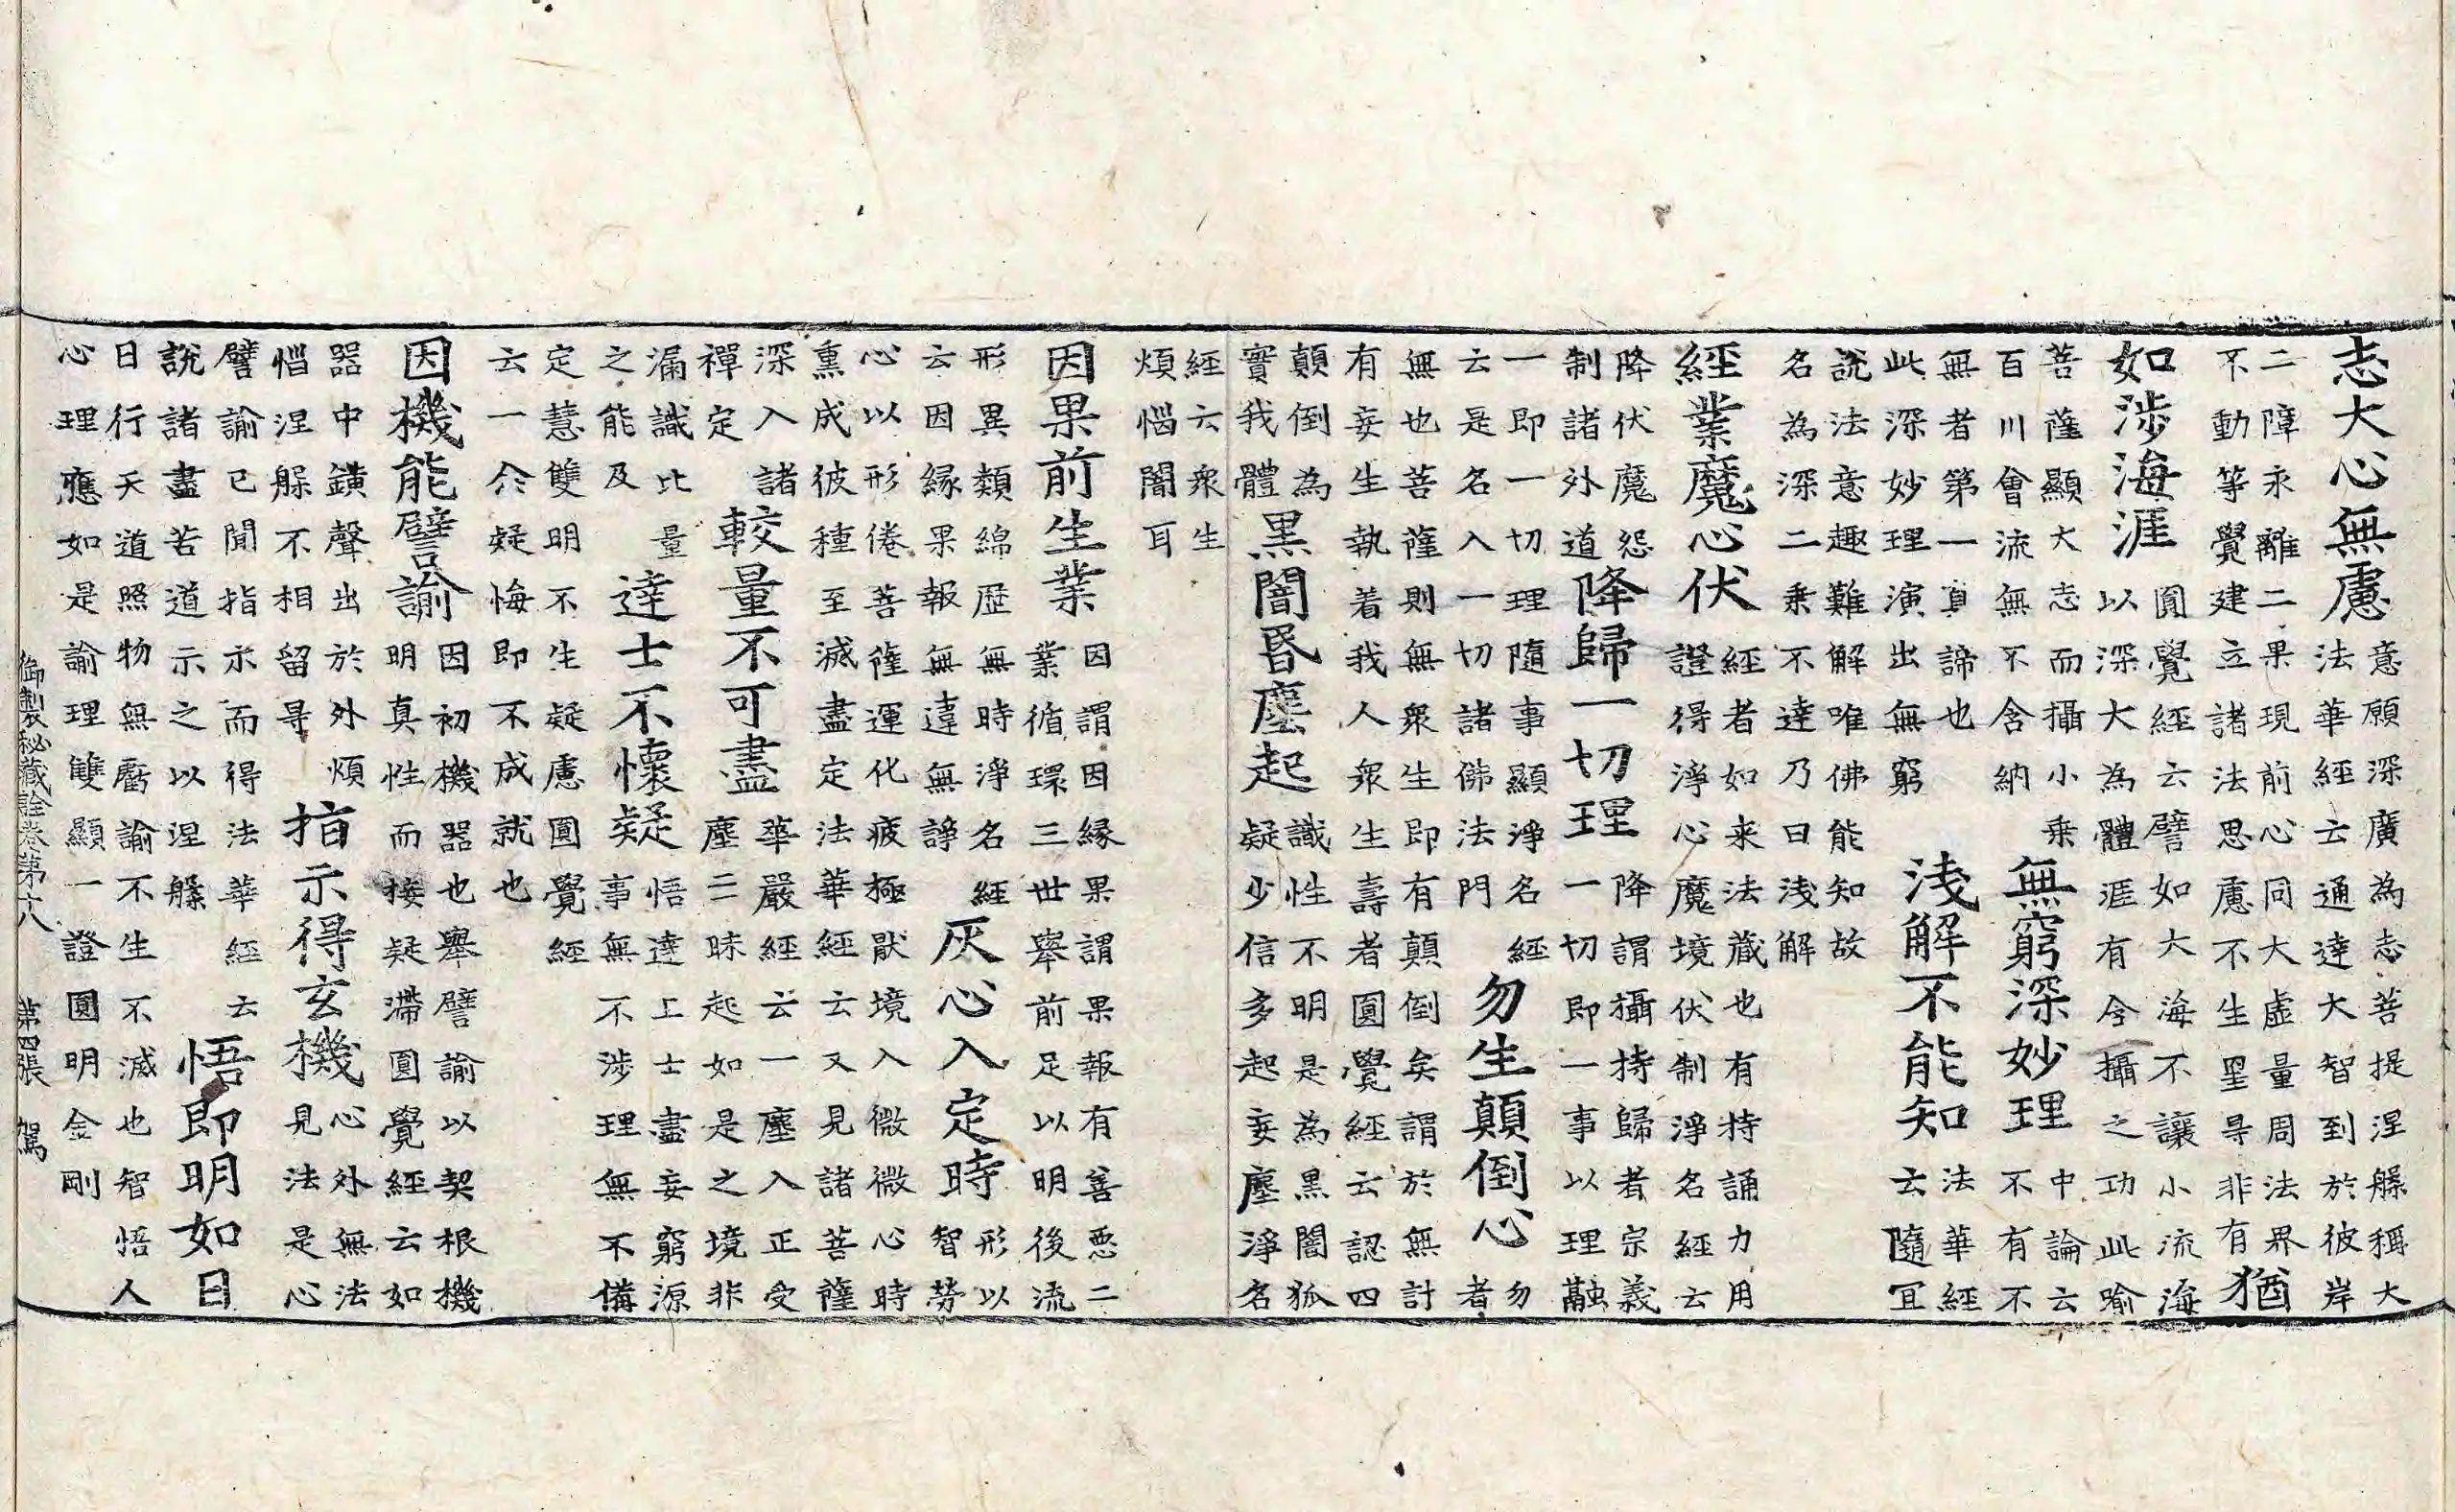 志大心無慮
意願深廣為志菩提涅槃稱大
法華經云通達大智到於彼岸
二障永離二果現前心同大虛量周法界
不動等覺建立諸法思慮不生罣㝵非有
猶
如涉海涯
圓覺經云譬如大海不讓小流海
以深大為體涯有含攝之功此喻
菩薩顯大志而攝小乗
百川會流無不含納
無窮深妙理
中論云
不有不
無者第一真諦也
此深妙理演出無窮
淺解不能知
法華經
云隨冝
説法意趣難解唯佛能知故
名為深二乗不達乃曰淺解
經業魔心伏
經者如来法藏也有持誦力用
證得淨心魔境伏制淨名經云
降伏魔怨
制諸外道
降歸一切理
降謂攝持歸者宗義
一一切即一事以理融
一即一一切理隨事顯淨名經
云是名入一切諸佛法門
勿生顛倒心
勿
者
無也菩薩則無衆生即有顛倒矣謂於無計
有妄生執着我人衆生壽者圓覺經云認四
顛倒為
實我體
黑闇昏塵起
識性不明是為黑闇狐
疑少信多起妄塵淨名
經云衆生
煩惱闇耳
因果前生業
因謂因緣果謂果報有善惡二
業循環三世舉前足以明後流
形異類綿歷無時淨名經
云因緣果報無違無諍
灰心入定時
形以
智勞
心以形倦菩薩運化疲極厭境入微微心時
熏成彼種至滅盡定法華經云又見諸菩薩
深入諸
禪定
較量不可盡
華嚴經云一塵入正受
塵三昧起如是之境非
漏識比量
之能及
達士不懷疑
悟達上士盡妄窮源
事無不涉理無不備
定慧雙明不生疑慮圓覺經
云一念疑悔即不成就也
因機能譬諭
因初機器也舉譬諭以契根機
明真性而接疑滯圓覺經云如
器中鐄聲出於外煩
惱涅槃不相留㝵
指示得玄機
心外無法
見法是心
譬諭已聞指示而得法華經云
説諸盡苦道示之以涅槃
悟即明如日
日行天道照物無虧諭不生不滅也智悟人
心理應如是諭理雙顯一證圓明金剛
御製秘藏詮卷第十八 第四張 駕